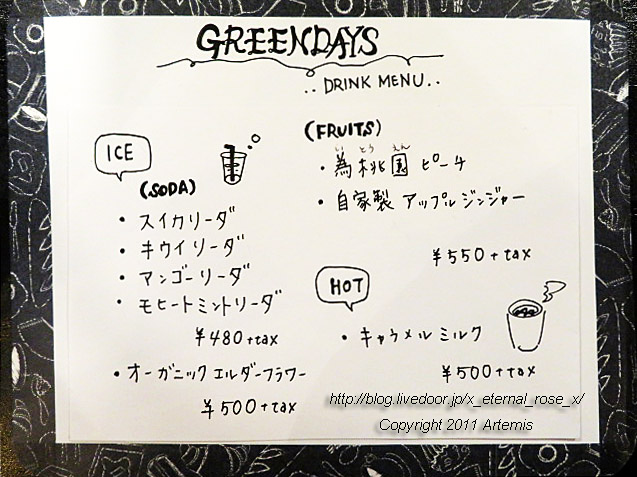 GREENDAYS
..DRINK MENU..
ICE
(SODA)
・スイカリーダ
・キウイリーダ
・マンゴーリーダ
・モヒートミントリーダ
¥480+tax
・オーガニックエルダーフラワー
¥500+tax
(FRUITS)
いとうえん
・為桃園 ピーチ
・自家製 アップルジンジャー
¥550+tax
HOT
・キャラメルミルク
¥500+tax
http://blog.livedoor.jp/x_eternal_rose_x/
Copyright 2011 Artemis